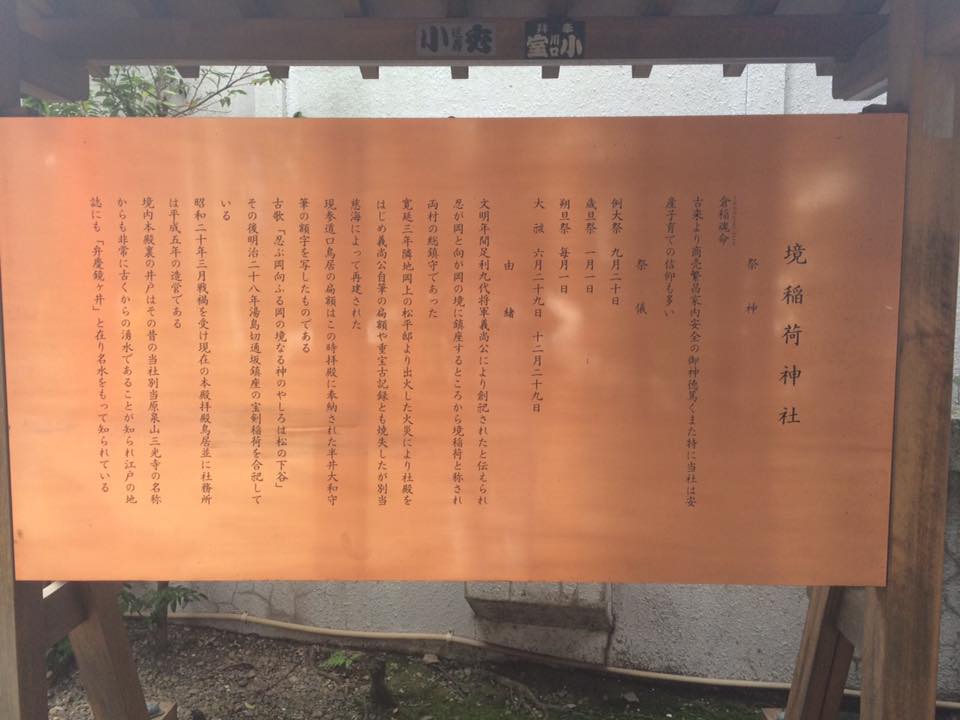 境稲荷神社
祭神
倉稲魂命
古来より商売繁昌家内安全の御神徳篤くまた特に当社は安
産子育ての信仰も多い
祭儀
例大祭 九月二十日
歳旦祭 一月一日
朔旦祭 毎月一日
大祓 六月二十九日 十二月二十九日
由緒
文明年間足利九代将軍義尚公により創祀されたと伝えられ
忍が岡と向が岡の境に鎮座するところから境稲荷と称され
両村の総鎮守であった
寛延三年隣地岡上の松平邸より出火した火災により社殿を
はじめ義尚公自筆の扁額や重宝古記録とも焼失したが別当
慈海によって再建された
現参道口鳥居の扁額はこの時拝殿に奉納された半井大和守
筆の額字を写したものである
古歌「忍ぶ岡向ふる岡の境なる神のやしろは松の下谷」
その後明治二十八年湯島切通坂鎮座の宝剣稲荷を合祀して
いる
昭和二十年三月戦禍を受け現在の本殿拝殿鳥居並に社務所
は平成五年の造営である
境内本殿裏の井戸はその昔の当社別当原泉山三光寺の名称
からも非常に古くからの湧水であることが知られ江戸の地
誌にも「弁慶鏡ヶ井」と在り名水をもって知られている
小堂
川口
小秀